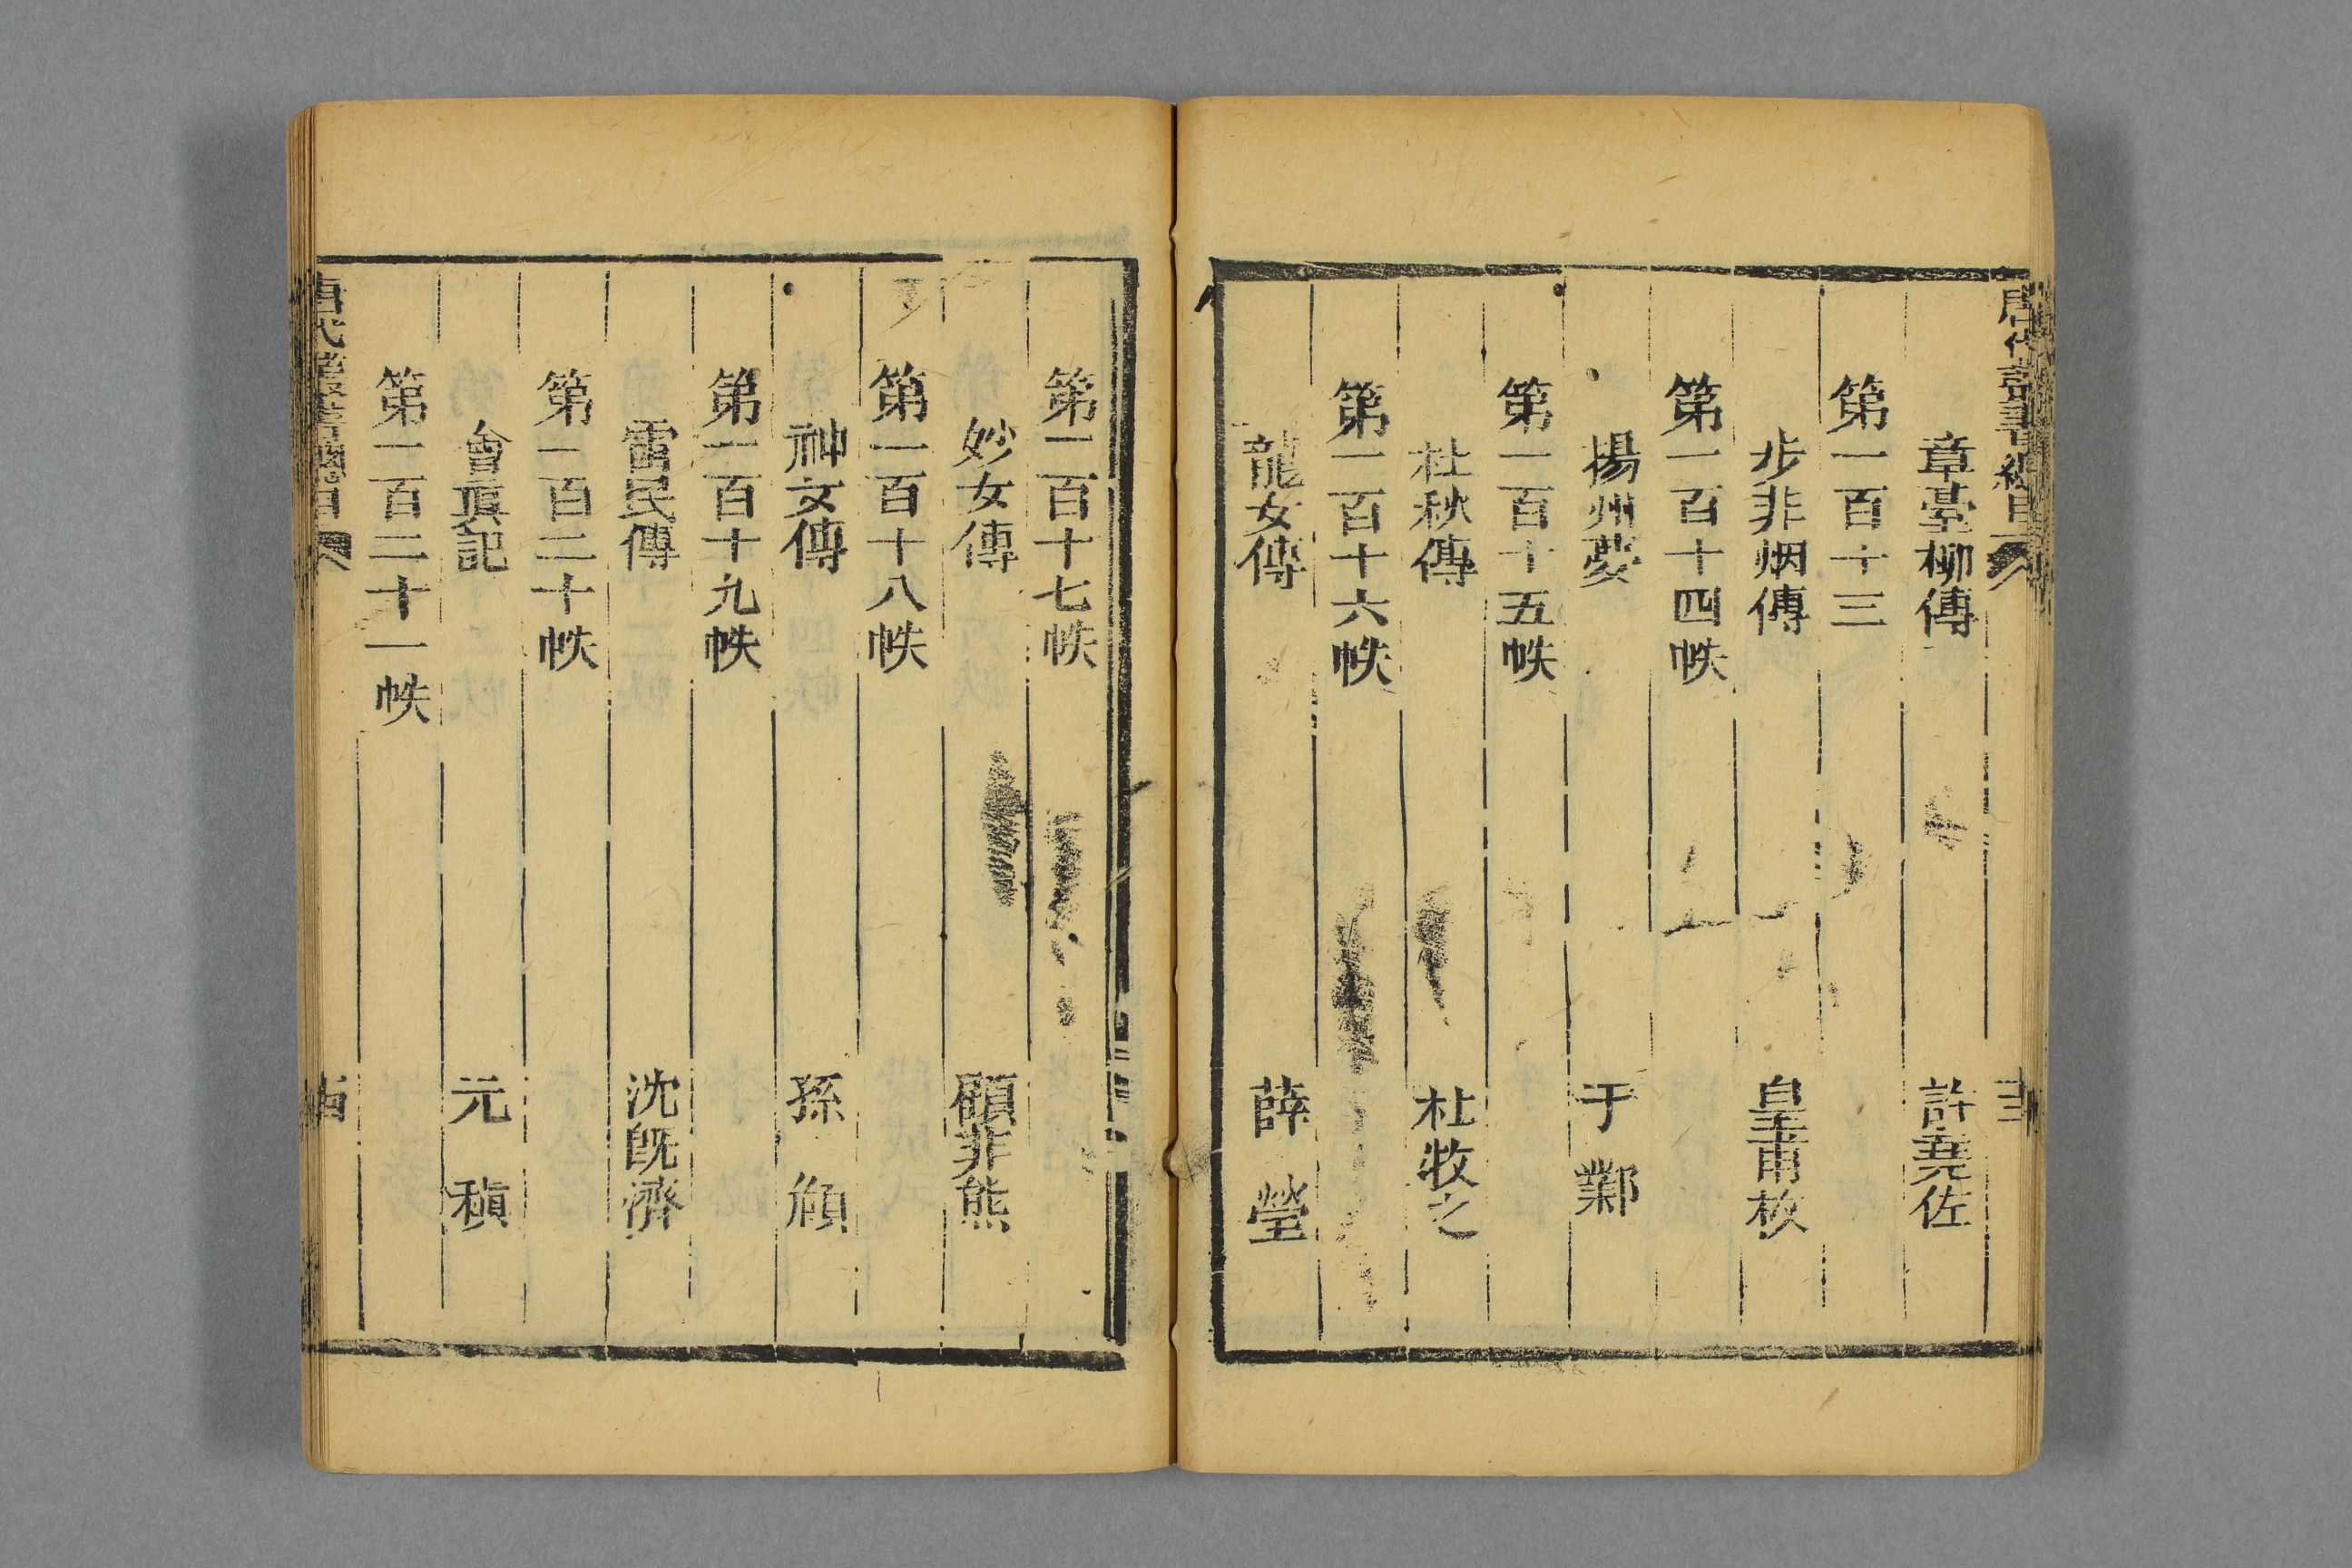 唐代叢書總目
章臺柳傳 許堯佐
第一百十三
步非烟傳 皇甫枚
第一百十四帙
揚州夢 于鄴
第一百十五帙
杜秋傳 杜牧之
第一百十六帙
龍女傳 薛瑩
第一百十七帙
妙女傳 顧非熊
第一百十八帙
神女傳 孫頠
第一百十九帙
雷民傳 沈旣濟
第一百二十帙
會眞記 元稹
第一百二十一帙
唐代叢書總目